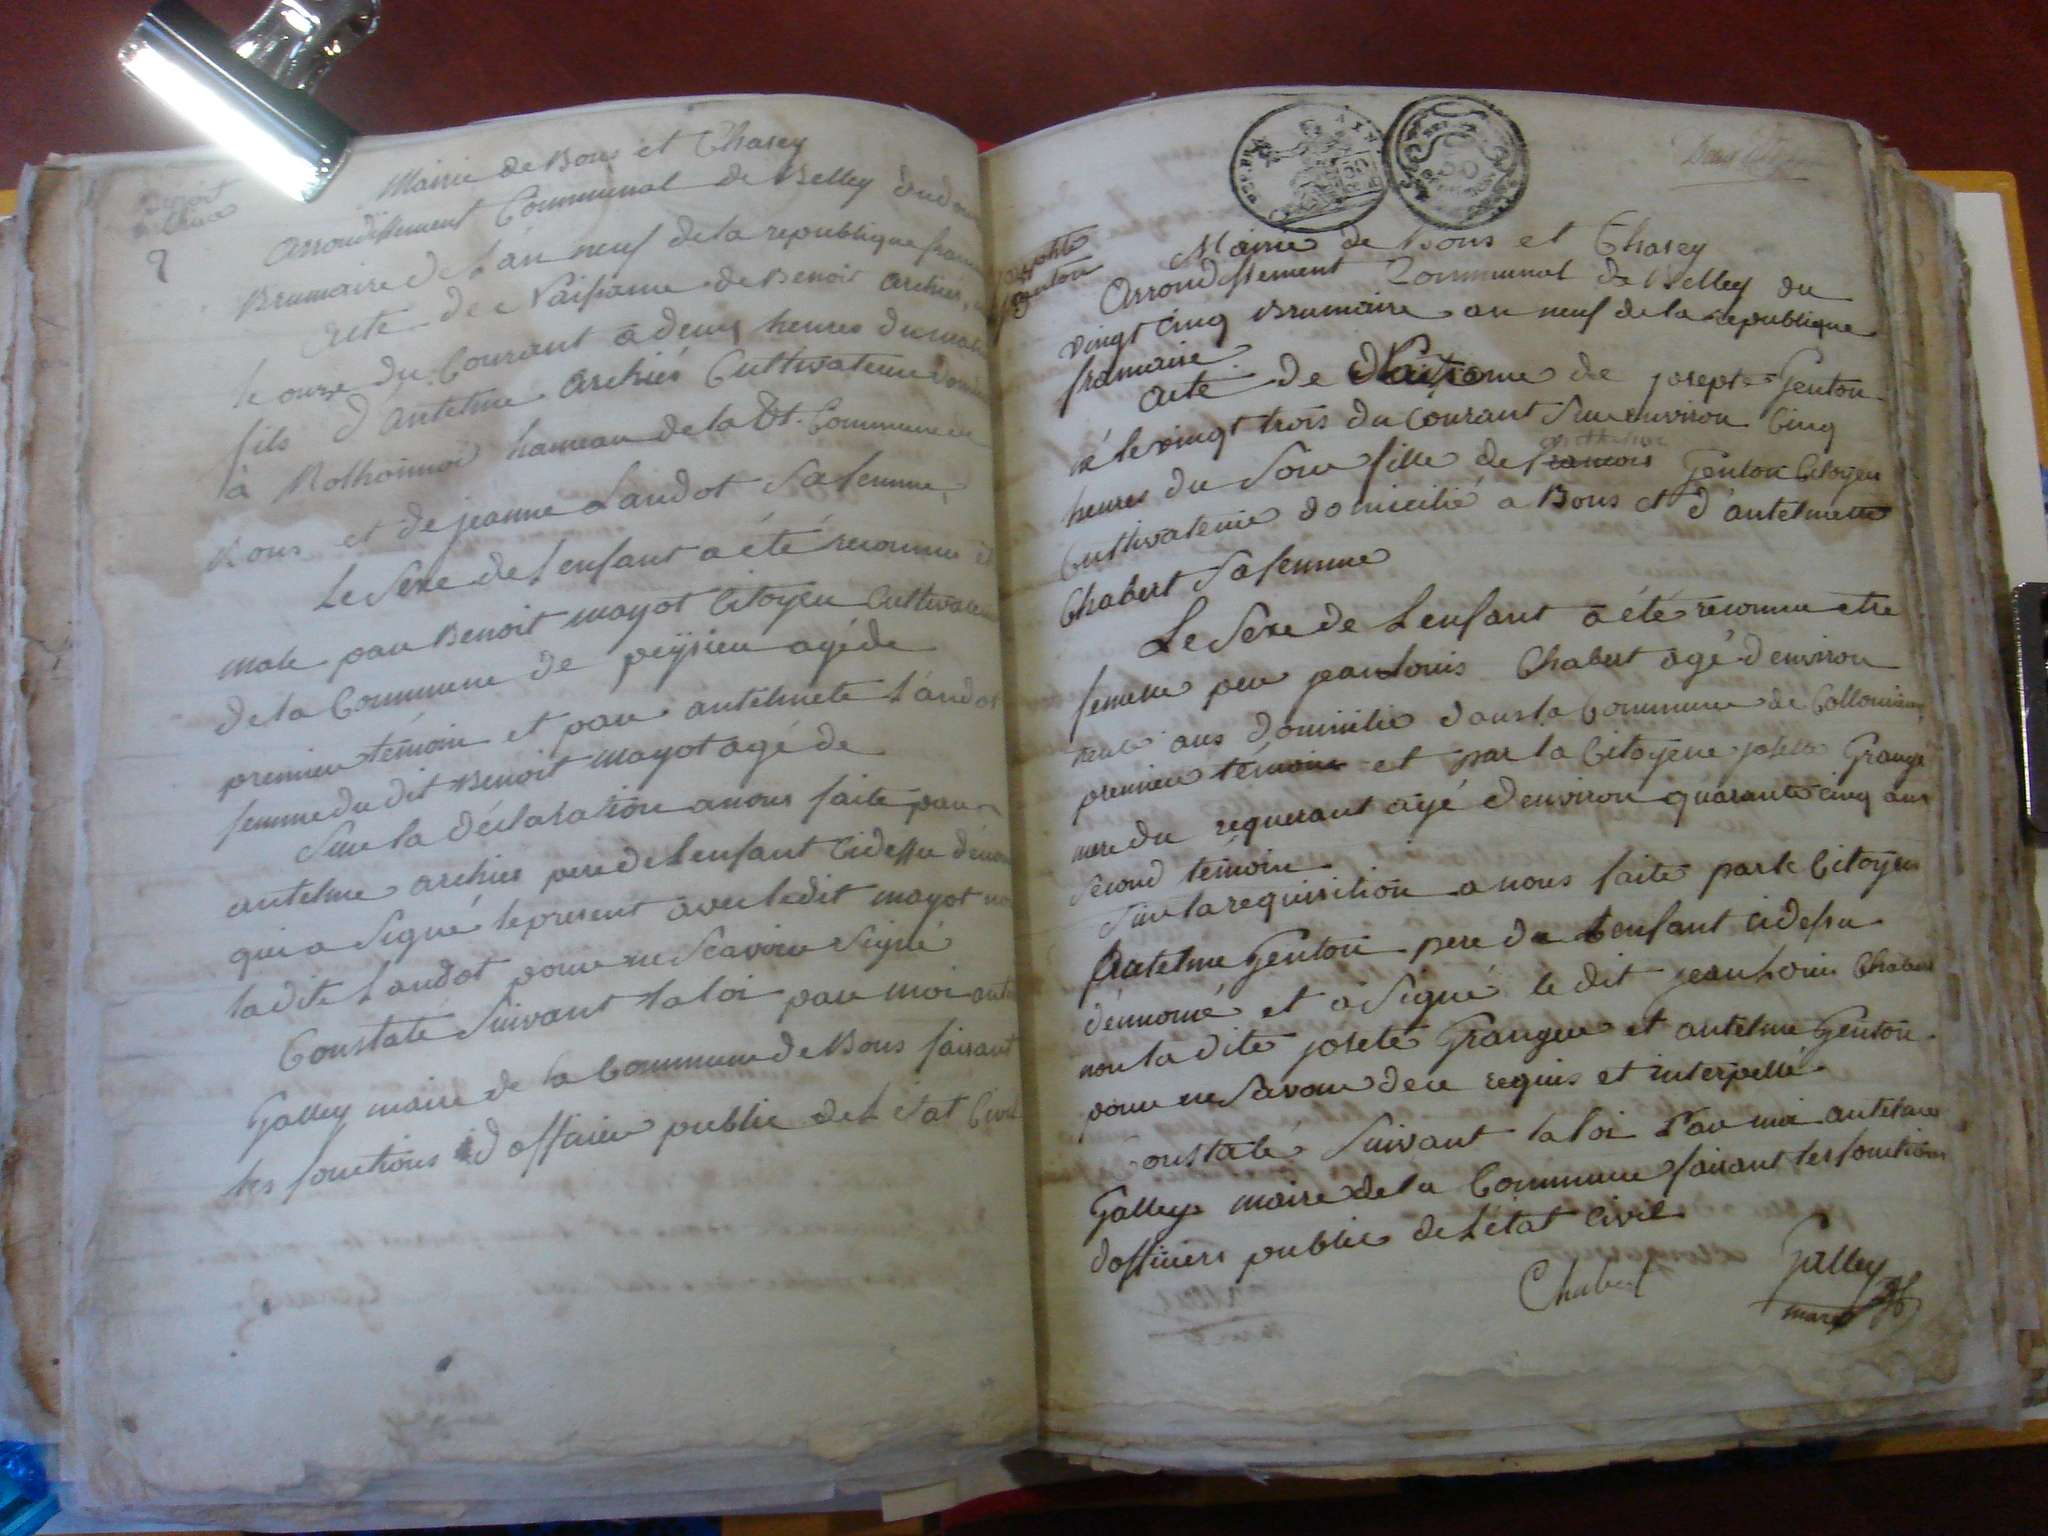 Benoit
Mairie de Bons et Chasey
Arrondissement Communal de Belley du dou
Brumaire de L'an neuf de la republique fran
Acte de Naissance de Benoit Archier,
le onze du Courant a deux heures du mat
fils d'Antelme Archiés Cultivateur domi
à Rothonnod hameau de la dt. Commune de
Bons et de jeanne Landot Sa femme,
Le Sexe de L'enfant a été reconnu et
male par Benoit mayot Citoyen Cultivateu
de la Commune de peÿsieu agé de
premier témoin et par antelmete Landot
femme du dit Benoit mayot agé de
Sur la déclaration a nous faite par
antelme archier pere de L'enfant Cidessu déno
qui a Signé le present avec le dit mayot non
la dite Landot pour ne Scavoir Signé
Constaté Suivant la loi par moi ant
Galley maire de la Commune de Bons faisant
les fonctions d'officier public de L'état Civil
josephte
Genton
Mairie de Bons et Chasey
Arrondissement Communal de Belley du
vingt cinq Brumaire an neuf de la republique
francaise
Acte de Naissance de josepte Genton
né le vingt trois du Courant Sur environ Cinq
heures du Soir fille de francois Genton Citoyen
Cultivateur domicilié a Bons et d'antelmette
Chabert Sa femme
Le Sexe de L'enfant a été reconnu etre
femelle par jean Louis Chabert agé d'environ
trente ans domicilié dans la Commune de Collomieu
premier témoin et par la Citoyene josette Grange
mere du requerant agé d'environ quarante cinq ans
Second témoin
Sur la requisition a nous faite par le Citoyen
Antelme Genton pere de L'enfant cidessu
dénnomé et a Signé le dit jean Louis Chabert
non la dite josete Grangee et antelme Genton
pour ne Savoir de ce requis et interpellé
Constaté Suivant la loi Par moi antelme
Galley maire de la Commune faisant les fonctions
d'officiers public de L'état Civil
Chabert Galley
maire